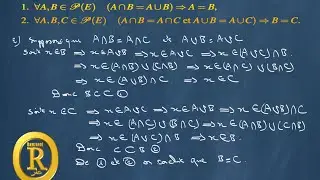 1. ∀A,B ∈ 𝒫(E) (A∩B = A∪B) ⇒ A = B,
2. ∀A,B,C ∈ 𝒫(E) (A∩B = A∩C et A∪B = A∪C) ⇒ B = C.
2) supposons que A∩B = A∩C et A∪B = A∪C
soit x∈B ⇒ x∈A∪B ⇒ x∈A∪C ⇒ x∈(A∪C)∩B
⇒ x∈(A∩B)∪(C∩B) ⇒ x∈(A∩C)∪(B∩C)
⇒ x∈(A∪B)∩C ⇒ x∈C
Donc B⊂C ①
soit x∈C ⇒ x∈A∪C ⇒ x∈A∪B ⇒ x∈(A∪B)∩C
⇒ x∈(A∩C)∪(B∩C) ⇒ x∈(A∩B)∪(C∩B)
⇒ x∈(A∪C)∩B ⇒ x∈B.
Donc C⊂B ②
De ① et ② on conclut que B=C.
R